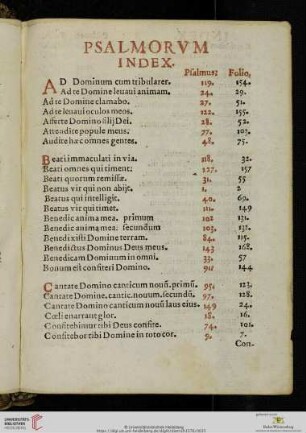 PSALMORVM
INDEX.
Psalmus: Folio,
AD Dominum cum tribularer. 119. 154.
Ad te Domine leuaui animam. 24. 29.
Ad te Domine clamabo. 27. 51.
Ad te leuaui oculos meos. 122. 155.
Afferte Domino filij Dei. 28. 52.
Attendite popule meus. 77. 103.
Audite hæc omnes gentes. 48. 75.
Beati immaculati in via. 118. 32.
Beati omnes qui timent. 127. 157
Beati quorum remissæ. 31. 55
Beatus vir qui non abijt. 1. 2
Beatus qui intelligit. 40. 69.
Beatus vir qui timet. 111. 149
Benedic anima mea. primum 102 131.
Benedic anima mea. secundum 103. 131.
Benedixisti Domine terram. 84. 115.
Benedictus Dominus Deus meus. 143 168.
Benedicam Dominum in omni. 33. 57
Bonum est confiteri Domino. 91. 144
Cantate Domino canticum nouũ. primũ. 95. 123.
Cantate Domino. cantic. nouum. secundũ. 97. 128.
Cantate Domino canticum nouũ laus eius. 149 24.
Cœli enarrant glor. 18. 16.
Confitebimur tibi Deus confite. 74. 101.
Confitebor tibi Domine in toto cor. 9. 7.
Con-
UNIVERSITÄTS-
BIBLIOTHEK
HEIDELBERG
© Universitätsbibliothek Heidelberg
Baden-Württemberg